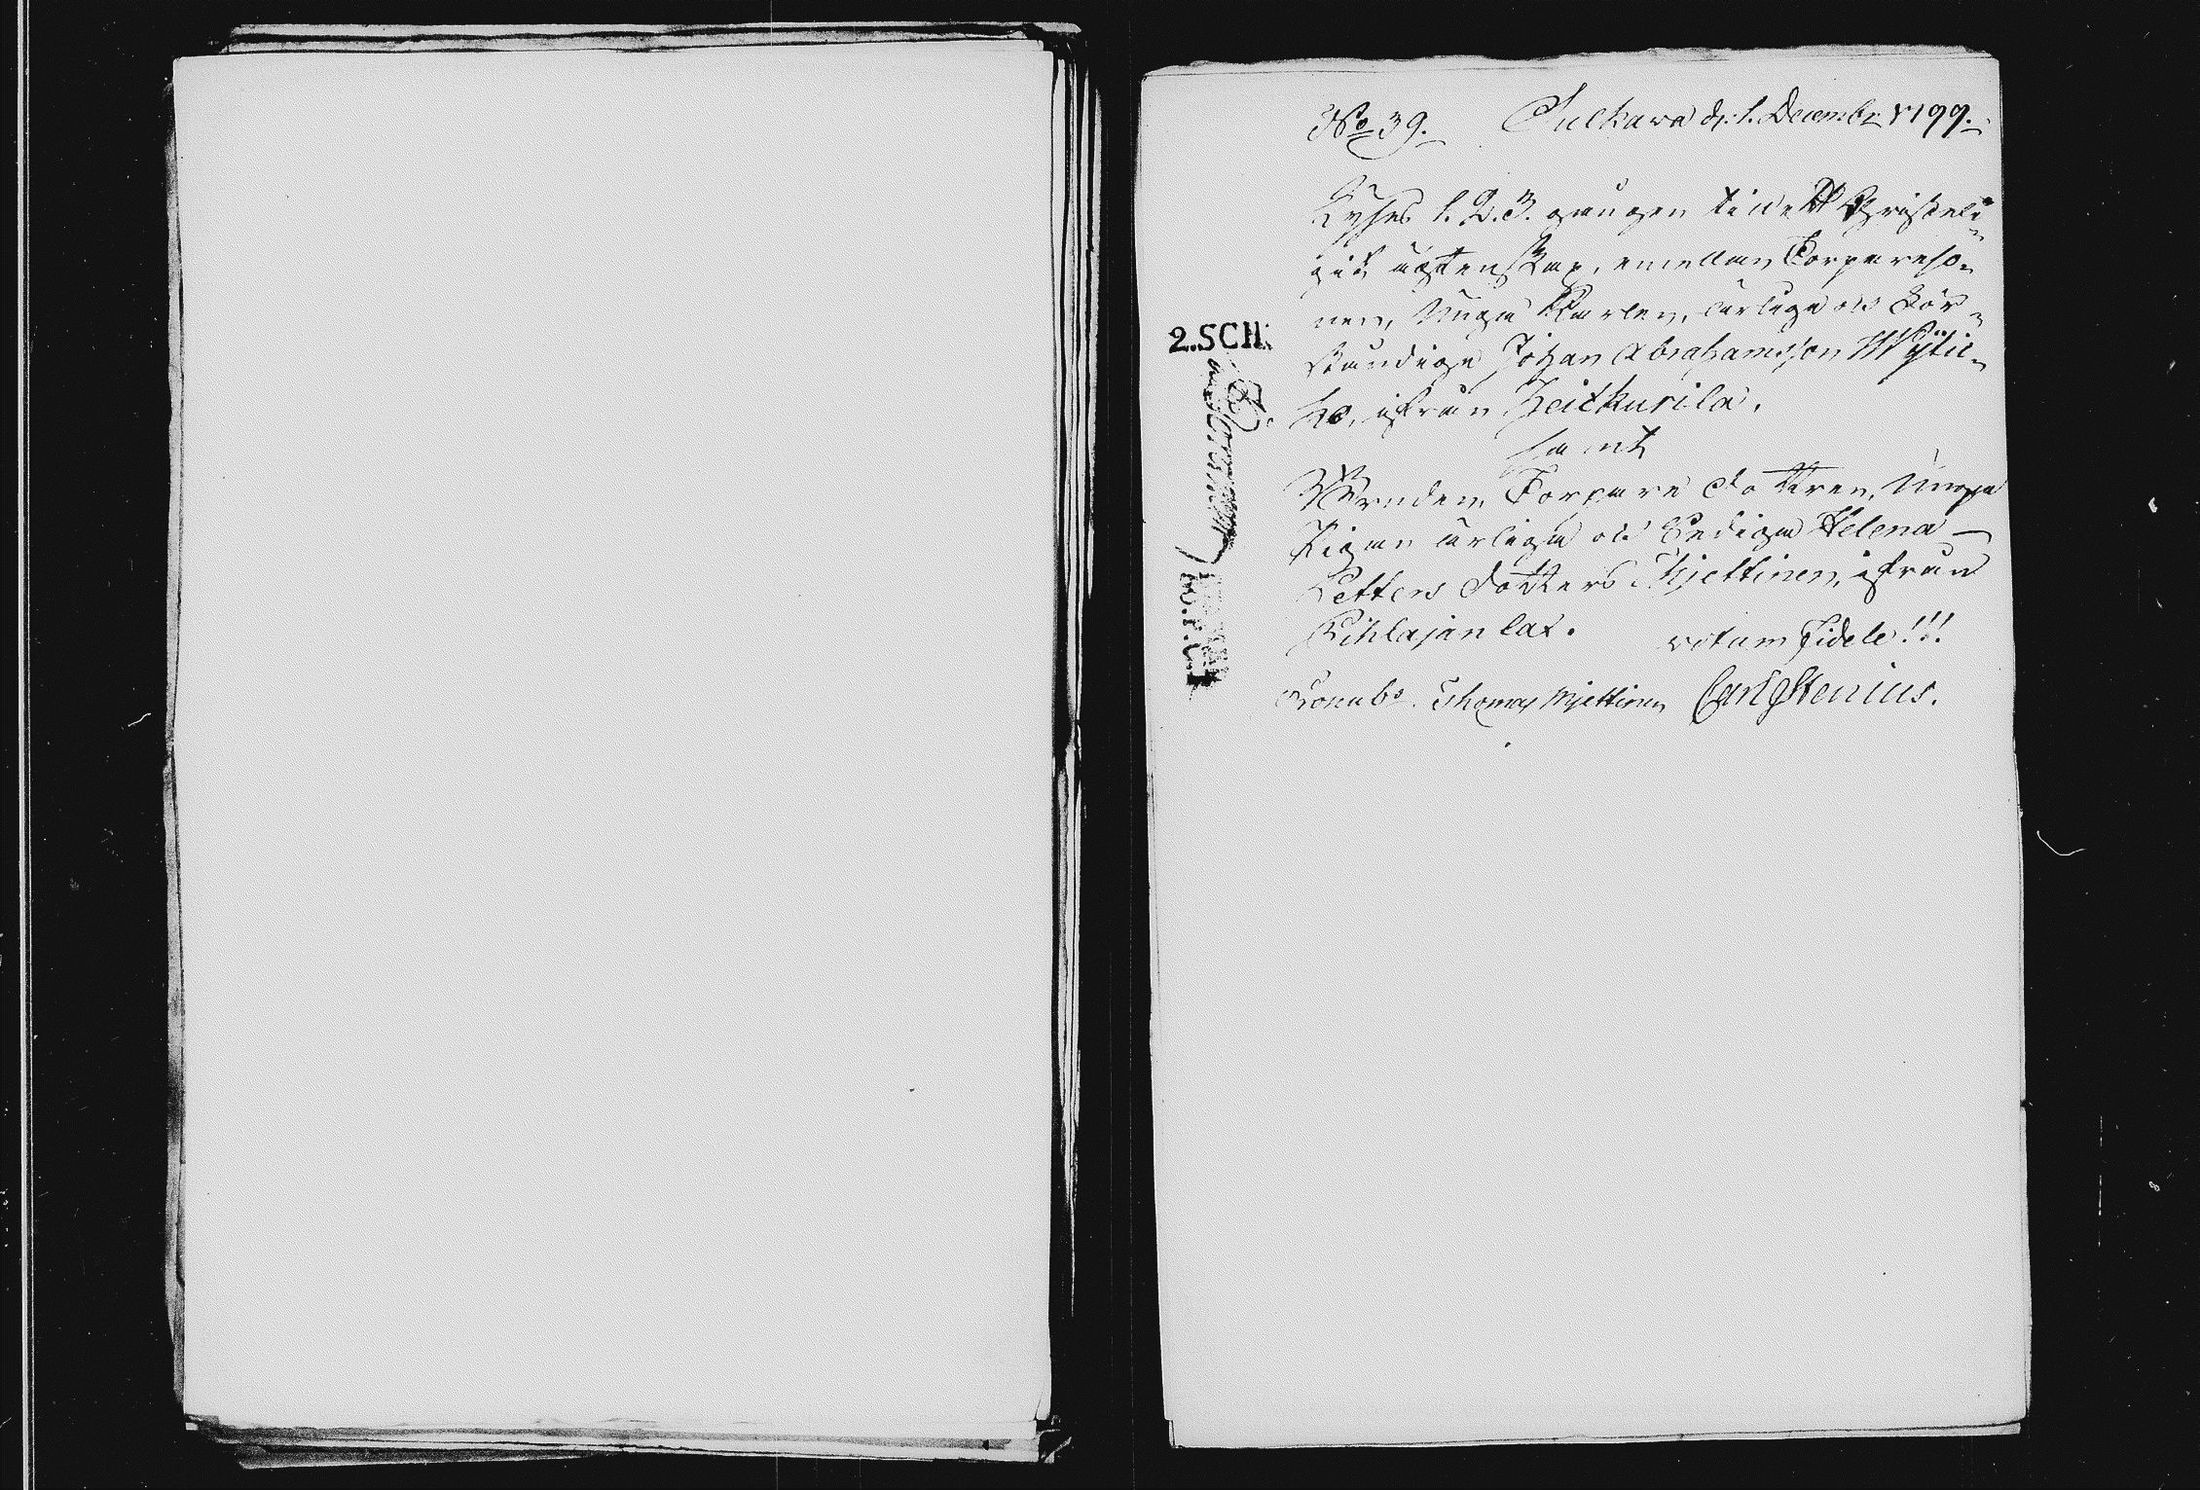 No 39. Sulkava d. 1. Decembr 1799.
Lyses 1. 2. 3. gången til et Christeli=
git ägtenskap, emellan Torpareso=
nen, Unga Karlen, ärlige och För=
ståndige Johan Abrahamsson
ifrån Heikkurila.
samt
Bruden, Torpare dottren, Unga
Pigan ärliga och Sediga Helena
Petters dotter Mjettinen, ifrån
Pihlajanlax.
votum Fidele!!!
Thomas Mjettinen Carl Stenius.
2.SCH.